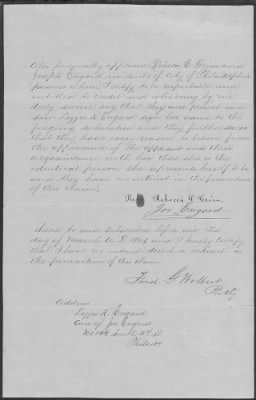 Also personally appeared Rebecca E. Grim and
Joseph Engard residents of City of Philadelphia
persons whom I certify to be respectable and
entitled to credit and who being by me
duly sworn say that they were present and
saw Lizzie K. Engard sign her name to the
foregoing declaration and they further swear
that they have every reason to believe from
the appearance of the applicant and their
acquaintance with her that she is the
identical person she represents herself to be
and they have no interest in the prosecution
of this Claim.
Rebecca E. Grim
Jos. Engard
Sworn to and subscribed before me this
day of March A. D. and I hereby certify
that I have no interest direct or indirect in
the prosecution of this Claim
Ford. G. Wolbert
Address
Lizzie K. Engard
Care of Jos Engard
South 2nd St
Philada